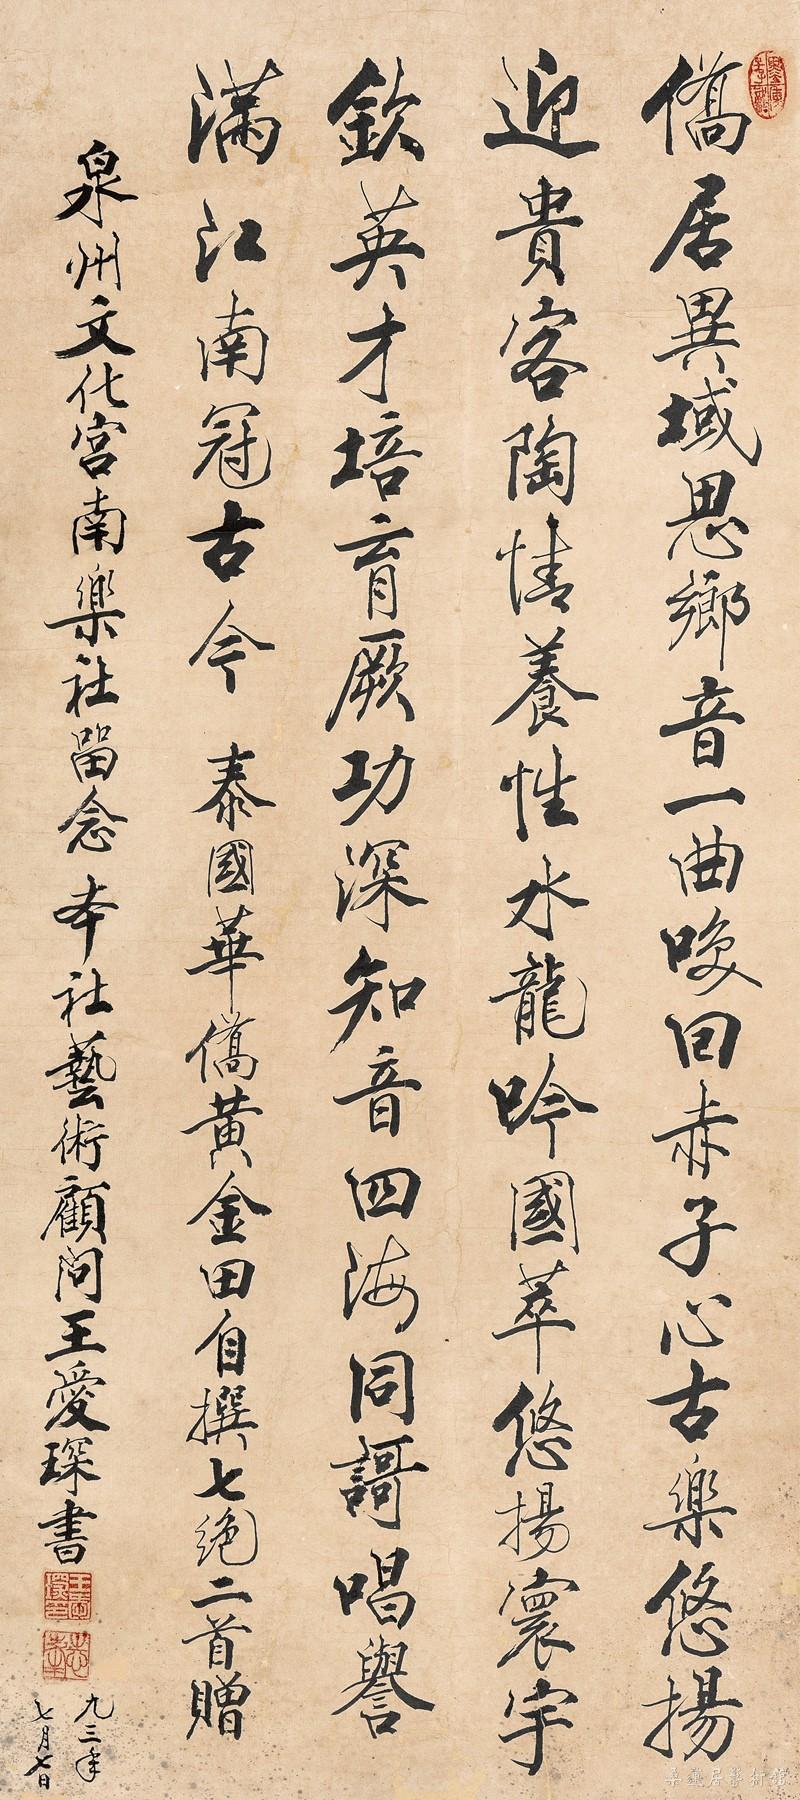 僑居異域思鄉音一曲喚回赤子心古樂悠揚
迎貴客陶情養性水龍吟國萃悠揚寰宇
欽英才培育厥功深知音四海同謌唱譽
滿江南冠古今 泰國華僑黃金田自撰七絕二首贈
泉州文化宮南樂社留念 本社藝術顧問王愛琛書
九三年
七月七日